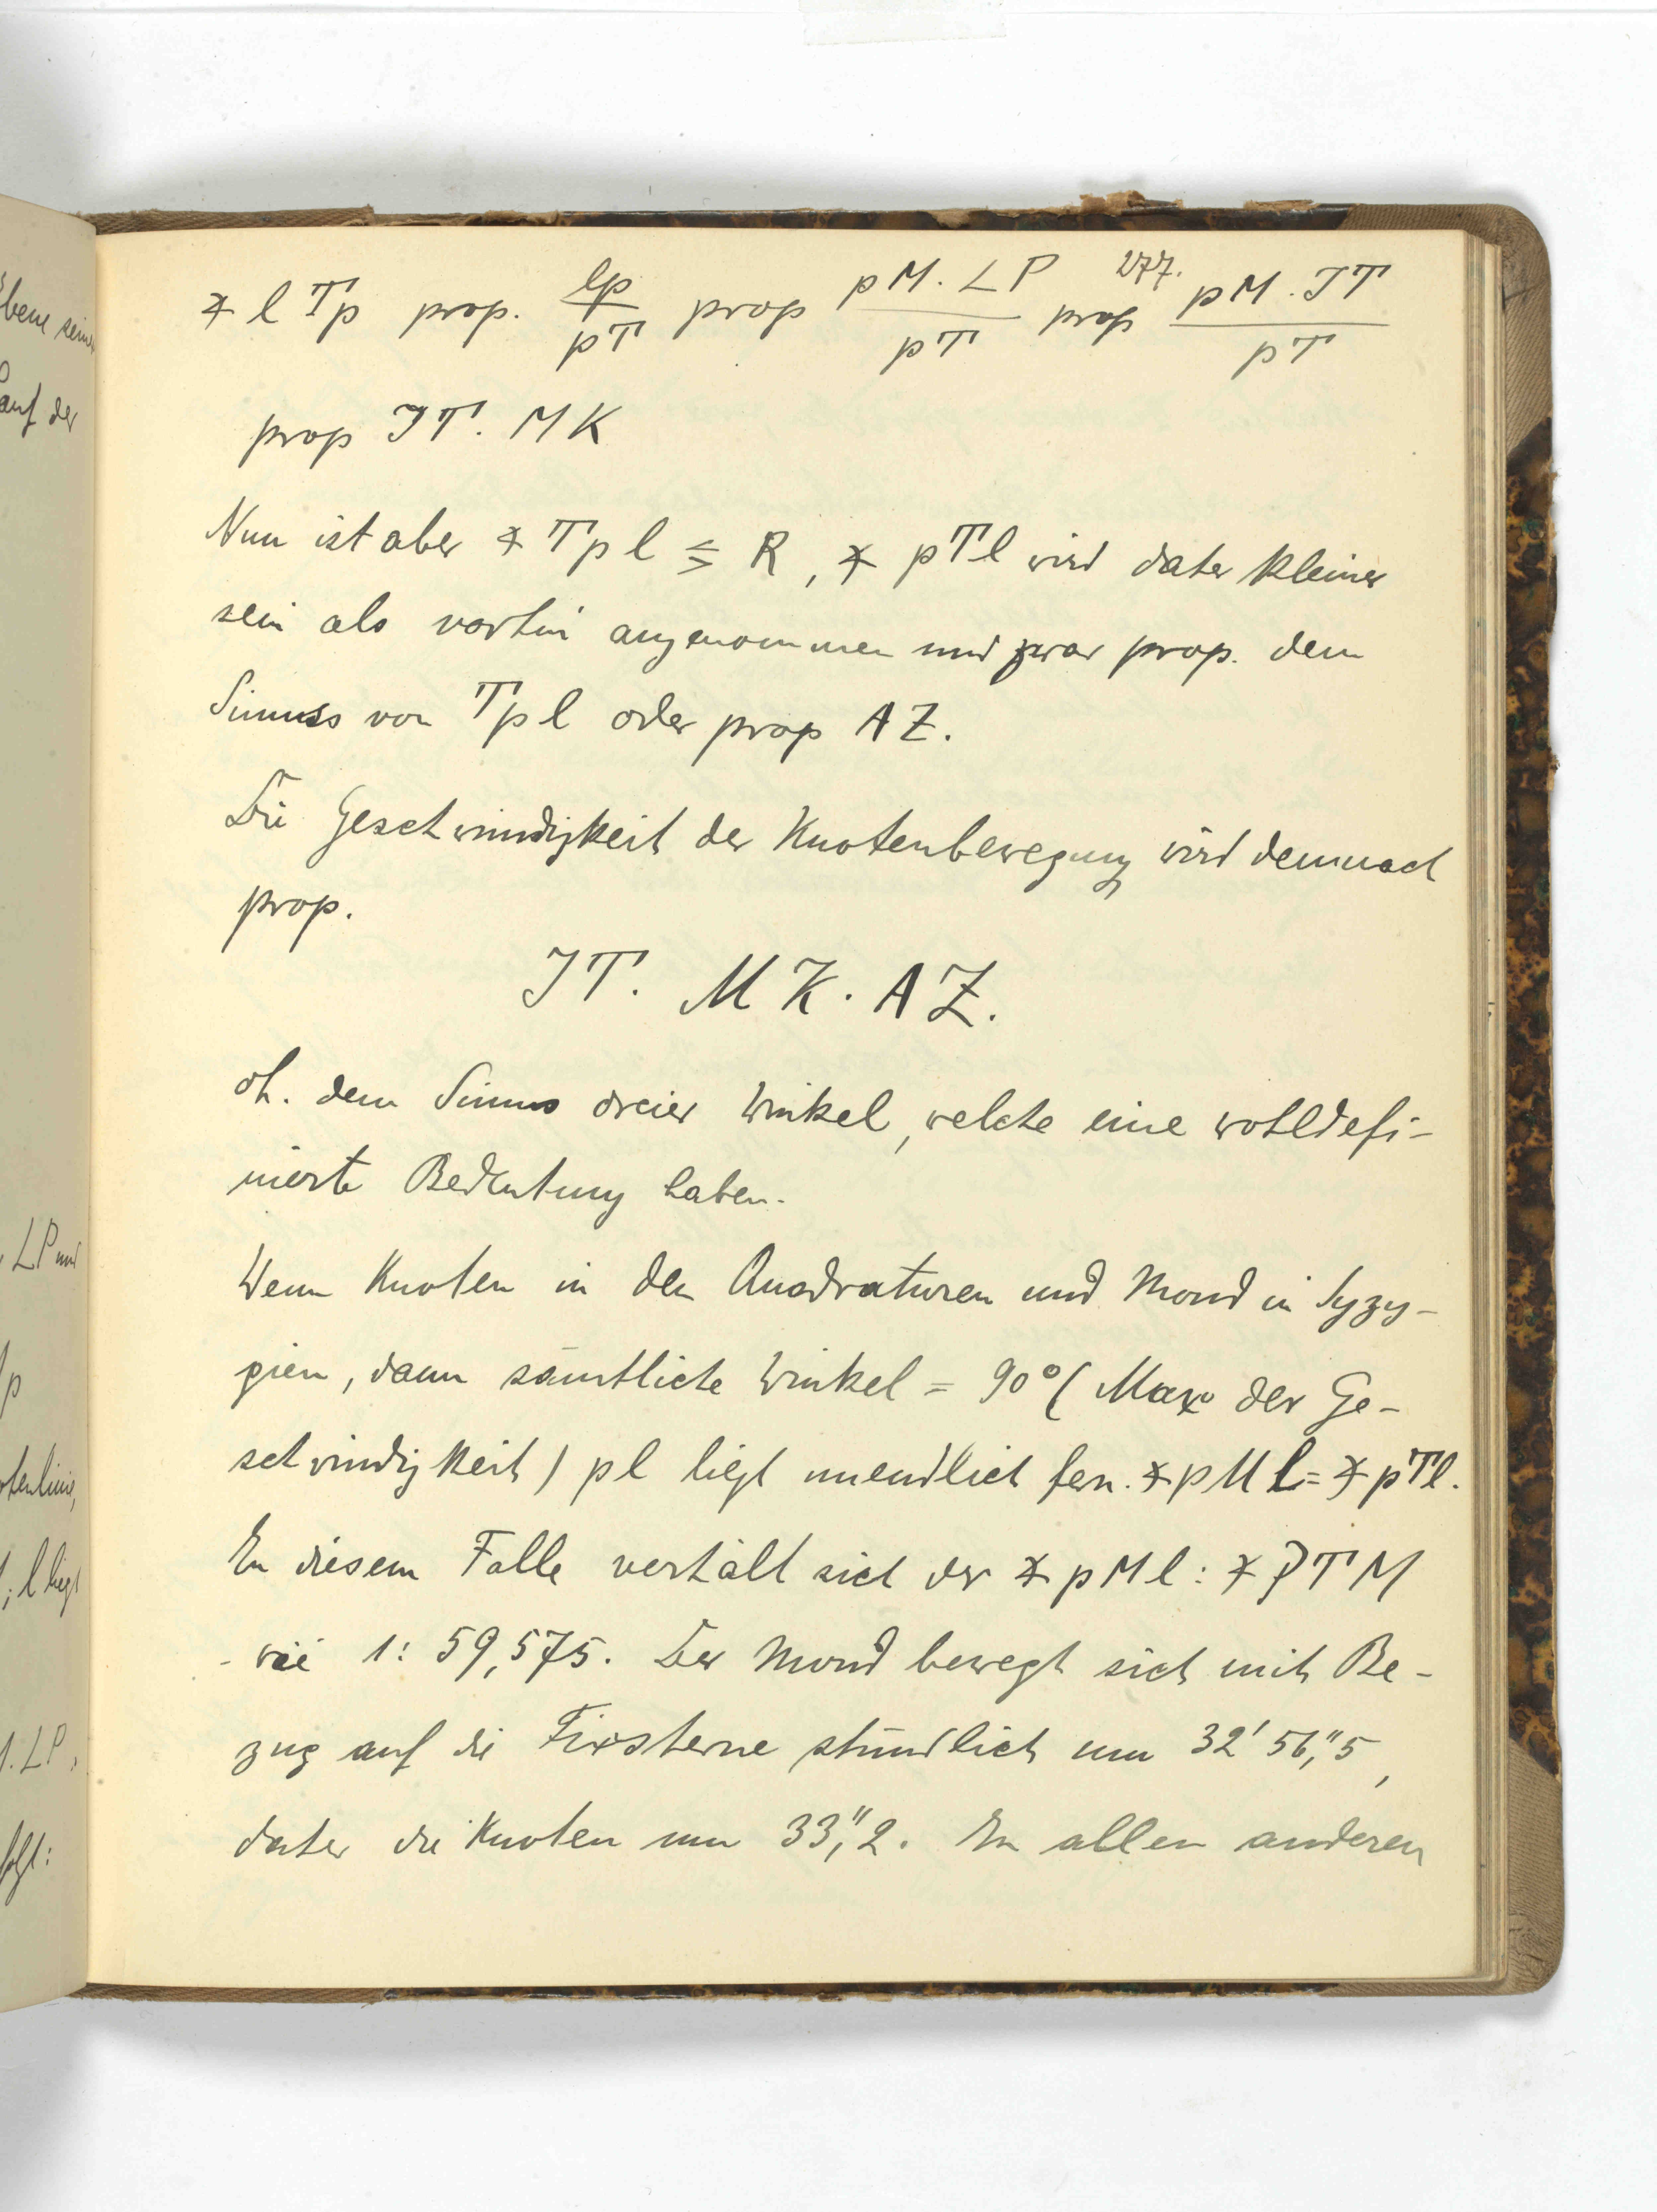 277.
∡ l T p prop. lp/pT prop pM. LP/pT prop pM. JT/pT
prop JT. MK
Nun ist aber ∡ T p l ≶ R, ∡ pTl wird daher kleiner
sein als vorhin angenommen und zwar prop. dem
Sinuss von T p l oder prop AZ.
Die Geschwindigkeit der Knotenbewegung wird demnach
prop.
JT. MK. AZ.
dh. dem Sinus dreier Winkel, welche eine wohldefi-
nierte Bedeutung haben.
Wenn Knoten in den Quadraturen und Mond in Syzy-
gien, dann sämtliche Winkel = 90° (Max. der Ge-
schwindigkeit) pl liegt unendlich fern. ∡ pMl = ∡ pTl.
In diesem Falle verhält sich der ∡ pMl : ∡ PTM
wie 1: 59,575. Der Mond bewegt sich mit Be-
zug auf die Fixsterne stündlich um 32' 56,"5,
daher die Knoten um 33,"2. In allen anderen
bene seine
auf der
LP und
p
otenlinie,
; l liegt
. LP,
folgt: